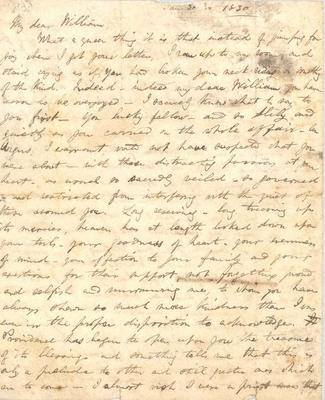 Jan 30 1830
My dear William
What a queer thing it is that instead of jumping for
joy when I got your letter, I ran up to my room and
stand crying as if you had broken your neck or
of the kind. Indeed - indeed my dear William you have
me to be overjoyed - I scarcely know what to say to
you first - You lucky fellow - and so slily and
quietly as you carried on the whole affair -
I warrant would not have suspected what you
were about - with these distracting passions at your
heart - as usual so sacredly veiled - so governed
and restricted from interfering with the quiet of
those around you. Long - long treasuring up
its mercies, heaven has at length looked down upon
your toils - your goodness of heart - your
of mind - your affection to your family and your
exertions for their support, not forgetting
and selfish and murmuring me to whom you have
always shown so much more kindness than I was
ever in the proper disposition to acknowledge.
Providence has begun to open upon you the treasures
of its blessing - and something tells me that this is
only a prelude to other and still greater ones which
are to come - I almost wish I were a priest that